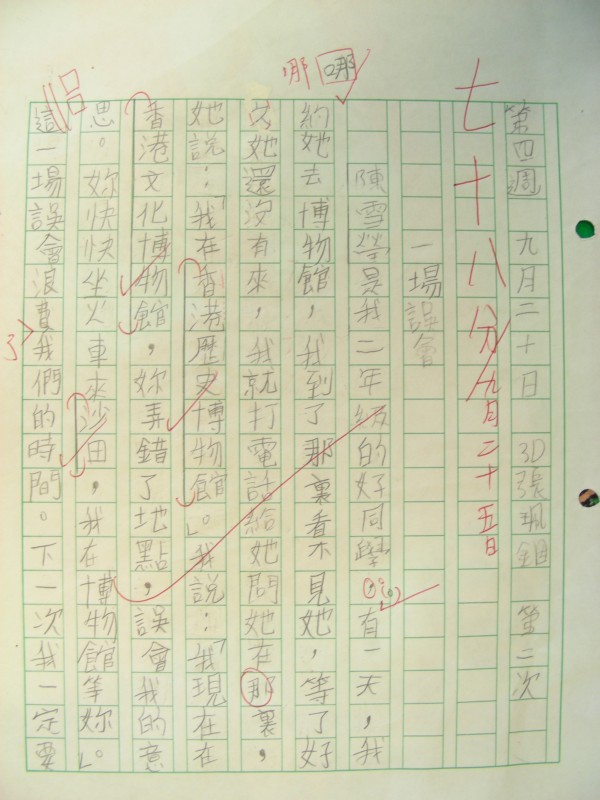 第四週 九月二十日 3D張珮 第二次
七十八分 九月二十五日
一場誤會
陳雪瑩是我二年級的好同學。有一天，我
哪 哪
約她去博物館，我到了那裏看不見她，等了好
久她還沒有來，我就打電話給她問她在那裏，
她說：「我在香港歷史博物館」。我說：「我現在在
香港文化博物館，妳弄錯了地點，誤會我的意
思。妳快快坐火車來沙田，我在博物館等妳」。
這一場誤會浪費我們的時間。下一次我一定要
了